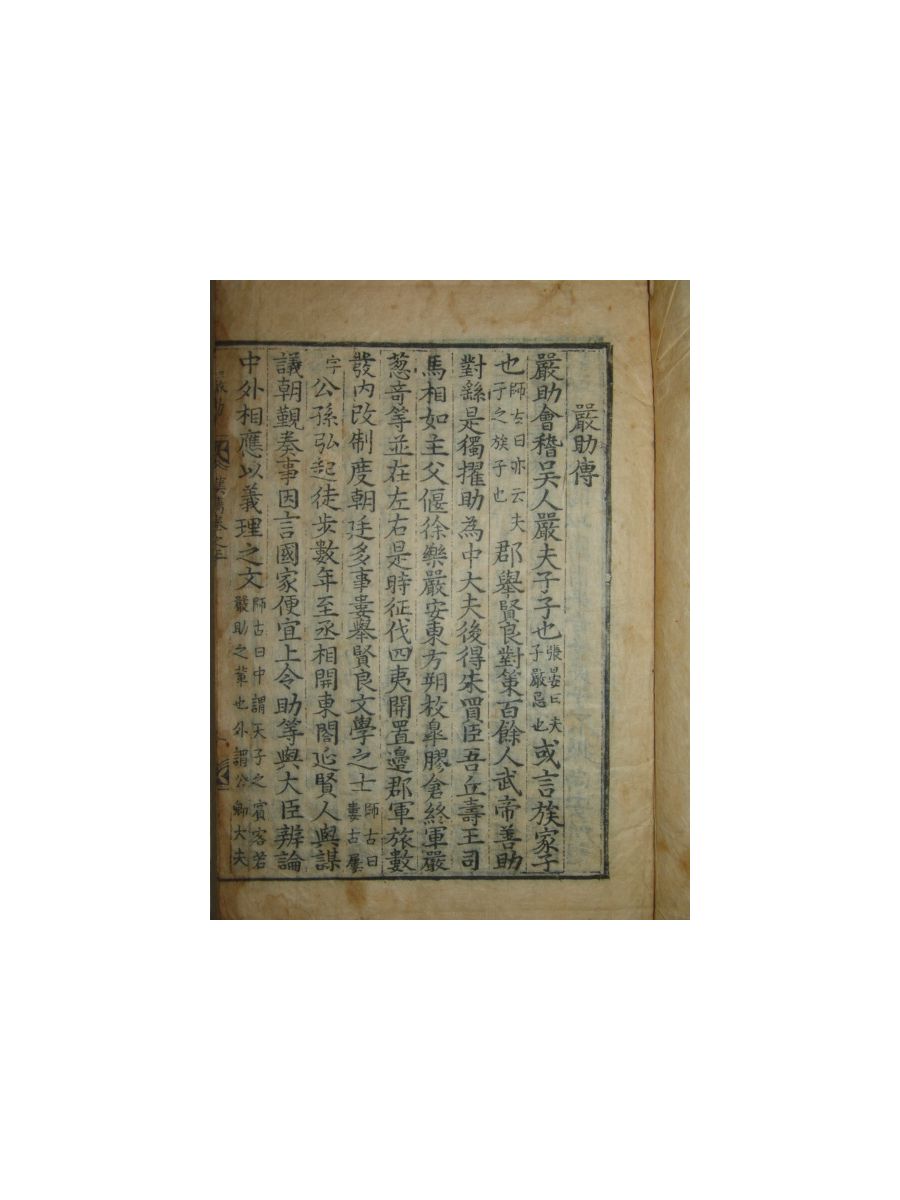 嚴助傳
嚴助會稽吴人嚴夫子子也張晏曰夫子嚴忌也或言族家子
也師古曰亦云夫子之族子也郡舉賢良對策百餘人武帝善助
對繇是獨擢助為中大夫後得朱買臣吾丘壽王司
馬相如主父偃徐樂嚴安東方朔枚皐膠倉終軍嚴
葱竒等並在左右是時征伐四夷開置邉郡軍旅數
發内改制度朝廷多事婁舉賢良文學之士師古曰婁古屢
字公孫弘起徒步數年至丞相開東閤延賢人與謀
議朝覲奏事因言國家便宜上令助等與大臣辨論
中外相應以義理之文師古曰中謂天子之賓客若嚴助之輩也外謂公卿大夫
嚴助